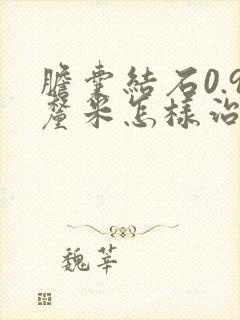 膽囊結石0.9
釐米怎樣治
魏莘